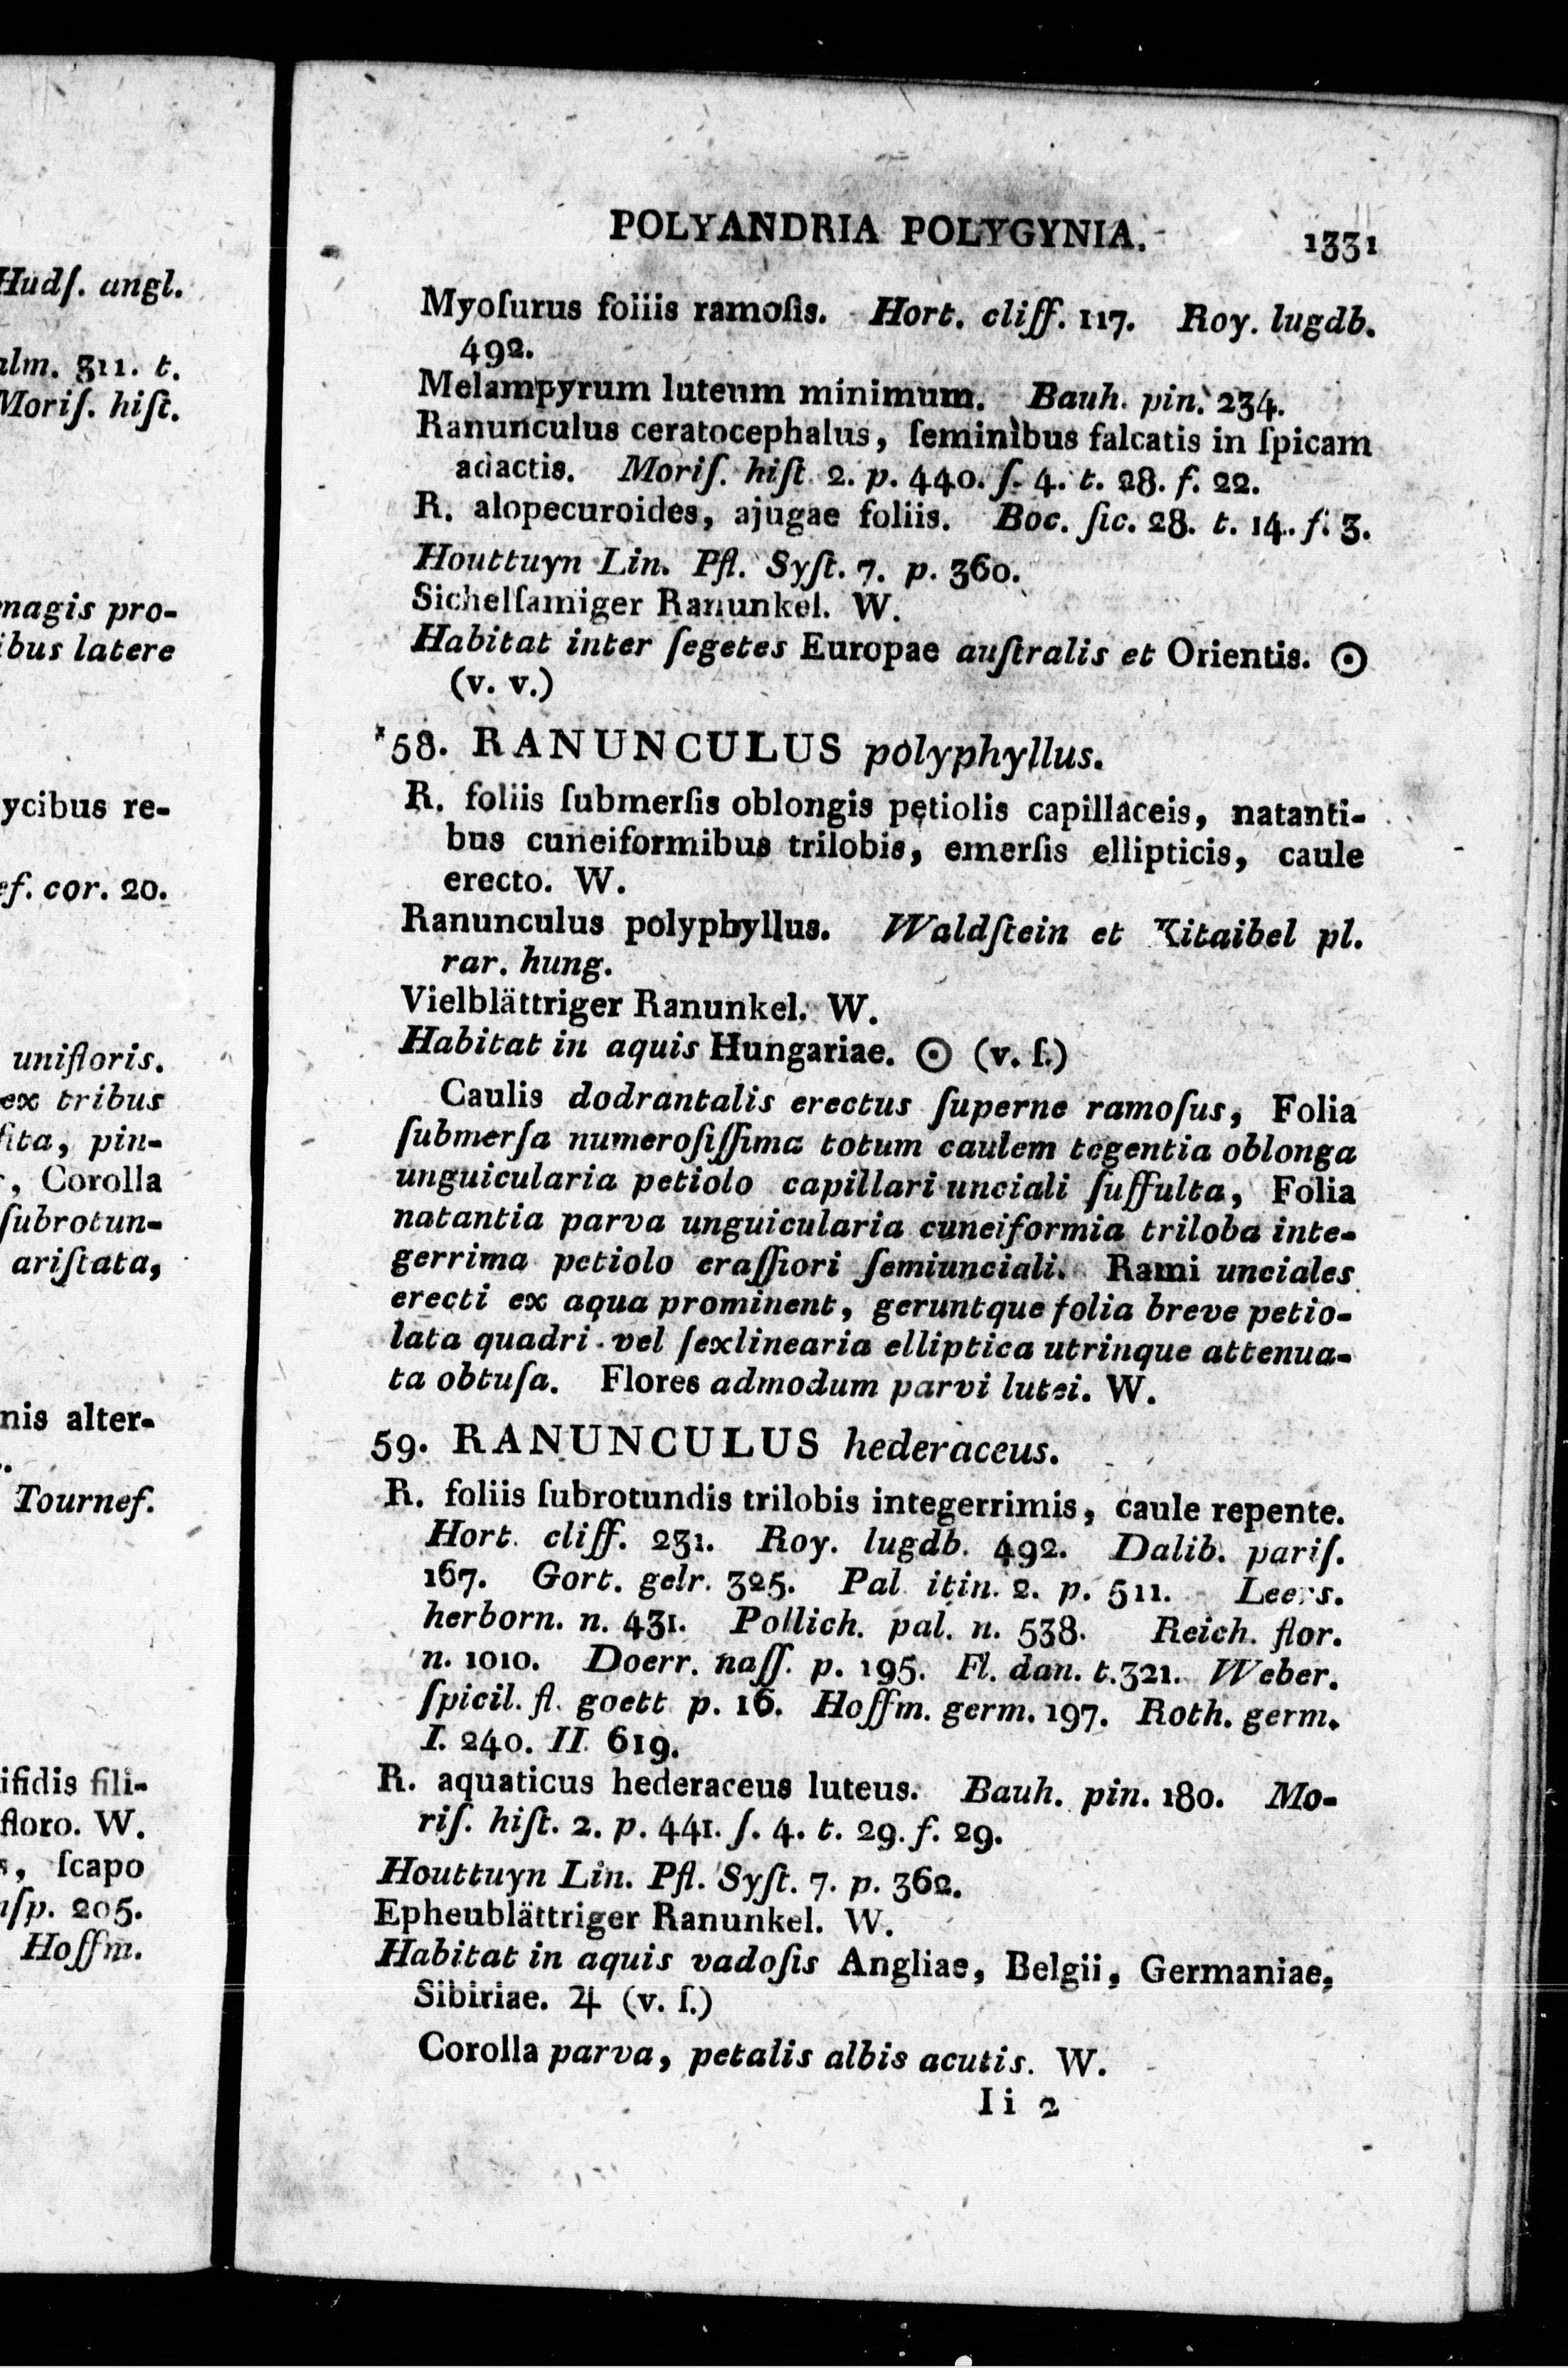 Hudſ. angl.
alm. 311. t.
Moriſ. hiſt.
magis pro-
ibus latere
ycibus re-
ef. cor. 20.
unifloris.
ex tribus
ſita, pin-
, Corolla
ſubrotun-
ariſtata,
nis alter-
Tournef.
ifidis fili-
floro. W.
s, ſcapo
nſp. 205.
Hoffm.
POLYANDRIA POLYGYNIA. 1331
Myoſurus foliis ramoſis. Hort. cliff. 117. Roy. lugdb.
492.
Melampyrum luteum minimum. Bauh. pin. 234.
Ranunculus ceratocephalus, ſeminibus falcatis in ſpicam
adactis. Moriſ. hiſt. 2. p. 440. ſ. 4. t. 28. f. 22.
R. alopecuroides, ajugae foliis. Boc. ſic. 28. t. 14. f. 3.
Houttuyn Lin. Pfl. Syſt. 7. p. 360.
Sichelſamiger Ranunkel. W.
Habitat inter ſegetes Europae auſtralis et Orientis. ☉
(v. v.)
*58. RANUNCULUS polyphyllus.
R. foliis ſubmerſis oblongis petiolis capillaceis, natanti-
bus cuneiformibus trilobis, emerſis ellipticis, caule
erecto. W.
Ranunculus polyphyllus. Waldſtein et Kitaibel pl.
rar. hung.
Vielblättriger Ranunkel. W.
Habitat in aquis Hungariae. ☉ (v. ſ.)
Caulis dodrantalis erectus ſuperne ramoſus, Folia
ſubmerſa numeroſiſſima totum caulem tegentia oblonga
unguicularia petiolo capillari unciali ſuffulta, Folia
natantia parva unguicularia cuneiformia triloba inte-
gerrima petiolo craſſiori ſemiunciali. Rami unciales
erecti ex aqua prominent, geruntque folia breve petio-
lata quadri- vel ſexlinearia elliptica utrinque attenua-
ta obtuſa. Flores admodum parvi lutei. W.
59. RANUNCULUS hederaceus.
R. foliis ſubrotundis trilobis integerrimis, caule repente.
Hort. cliff. 231. Roy. lugdb. 492. Dalib. pariſ.
167. Gort. gelr. 325. Pal. itin. 2. p. 511. Leers.
herborn. n. 431. Pollich. pal. n. 538. Reich. flor.
n. 1010. Doerr. naſſ. p. 195. Fl. dan. t. 321. Weber.
ſpicil. fl. goett p. 16. Hoffm. germ. 197. Roth. germ.
I. 240. II. 619.
R. aquaticus hederaceus luteus. Bauh. pin. 180. Mo-
riſ. hiſt. 2. p. 441. ſ. 4. t. 29. f. 29.
Houttuyn Lin. Pfl. Syſt. 7. p. 362.
Epheublättriger Ranunkel. W.
Habitat in aquis vadoſis Angliae, Belgii, Germaniae,
Sibiriae. ♃ (v. ſ.)
Corolla parva, petalis albis acutis. W.
Ii 2